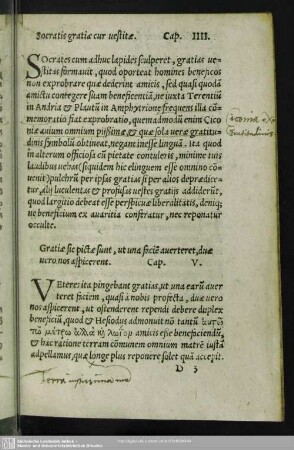 Socratis gratiæ cur uestitæ. Cap. IIII.
SOcrates cum adhuc lapides sculperet, gratias ue-
stitas formauit, quod oporteat homines beneficos
non exprobrare quæ dederint amicis, sed quasi quodã
amictu contegere suam beneficentiã, ne iuxta Terentiũ
in Andria & Plautũ in Amphytrione frequens illa cõ-
memoratio fiat exprobratio, quemadmodũ enim Cico-
niæ auium omnium pijssimæ & quæ sola ueræ gratitu-
dinis symbolũ obtineat, negam inesse linguã. Ita quod
in alterum officiosa cũ pietate contuleris, minime tuis
laudibus uehat (siquidem hic elinguem esse omnino co-
uenit) pulchrũ per ipsas gratias si per alios deprædice-
tur, alij luculentas & profusas uestes gratijs addiderũt,
quod largitio debeat esse perspicuæ liberalitatis, deniq;
ne beneficium ex auaritia conferatur, nec reponatur
occulte.
Gratiæ sic pictæ sunt, ut una faciẽ auerteret, duæ
uero nos aspicerent. Cap. V.
VEteres ita pingebant gratias, ut una earũ auer
teret faciem, quasi à nobis profecta, duæ uero
nos aspicerent, ut ostenderent rependi debere duplex
beneficiũ, quod & Hesiodus admonuit nõ tantũ αὐτῷ
τῷ μέτρῳ ἀλλὰ κ̀ λώϊον amicis esse beneficiendũ,
& hac ratione terram cõmunem omnium matrẽ iustã
adpellamus, quæ longe plus reponere solet quã accepit.
D 3
Terra iustissima